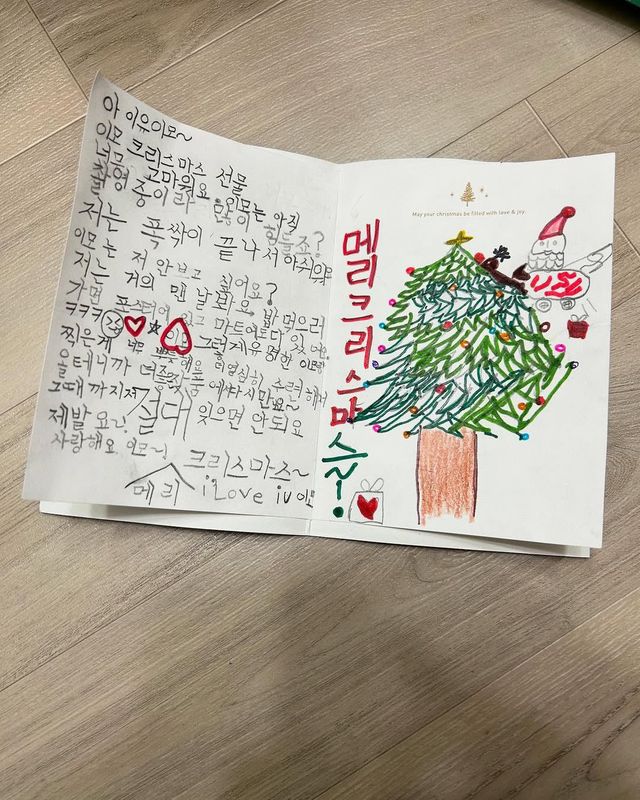 아 이유이모~
이모 크리스마스 선물
너무 고마워요. 이모는 아직
촬영 중이라 많이 힘들죠?
저는 폭싹이 끝나서 아쉬워요
이모는 저 안보고 싶어요?
저는 거의 맨날 봐요. 밥먹으러
가면 포스터에 있고 마트에도 다 있
ㅋㅋㅋ 그렇게 유명한 이모랑
찍은게 너무 뿌듯해요 더 열심히 수련해서
올테니까
그때까지 저 절대 잊으면 안되요
제발요~!
사랑해요 이모~! 크리스마스~
메리 i Love iu 이모
May your christmas be filled with love & joy
메리크리스마스~!